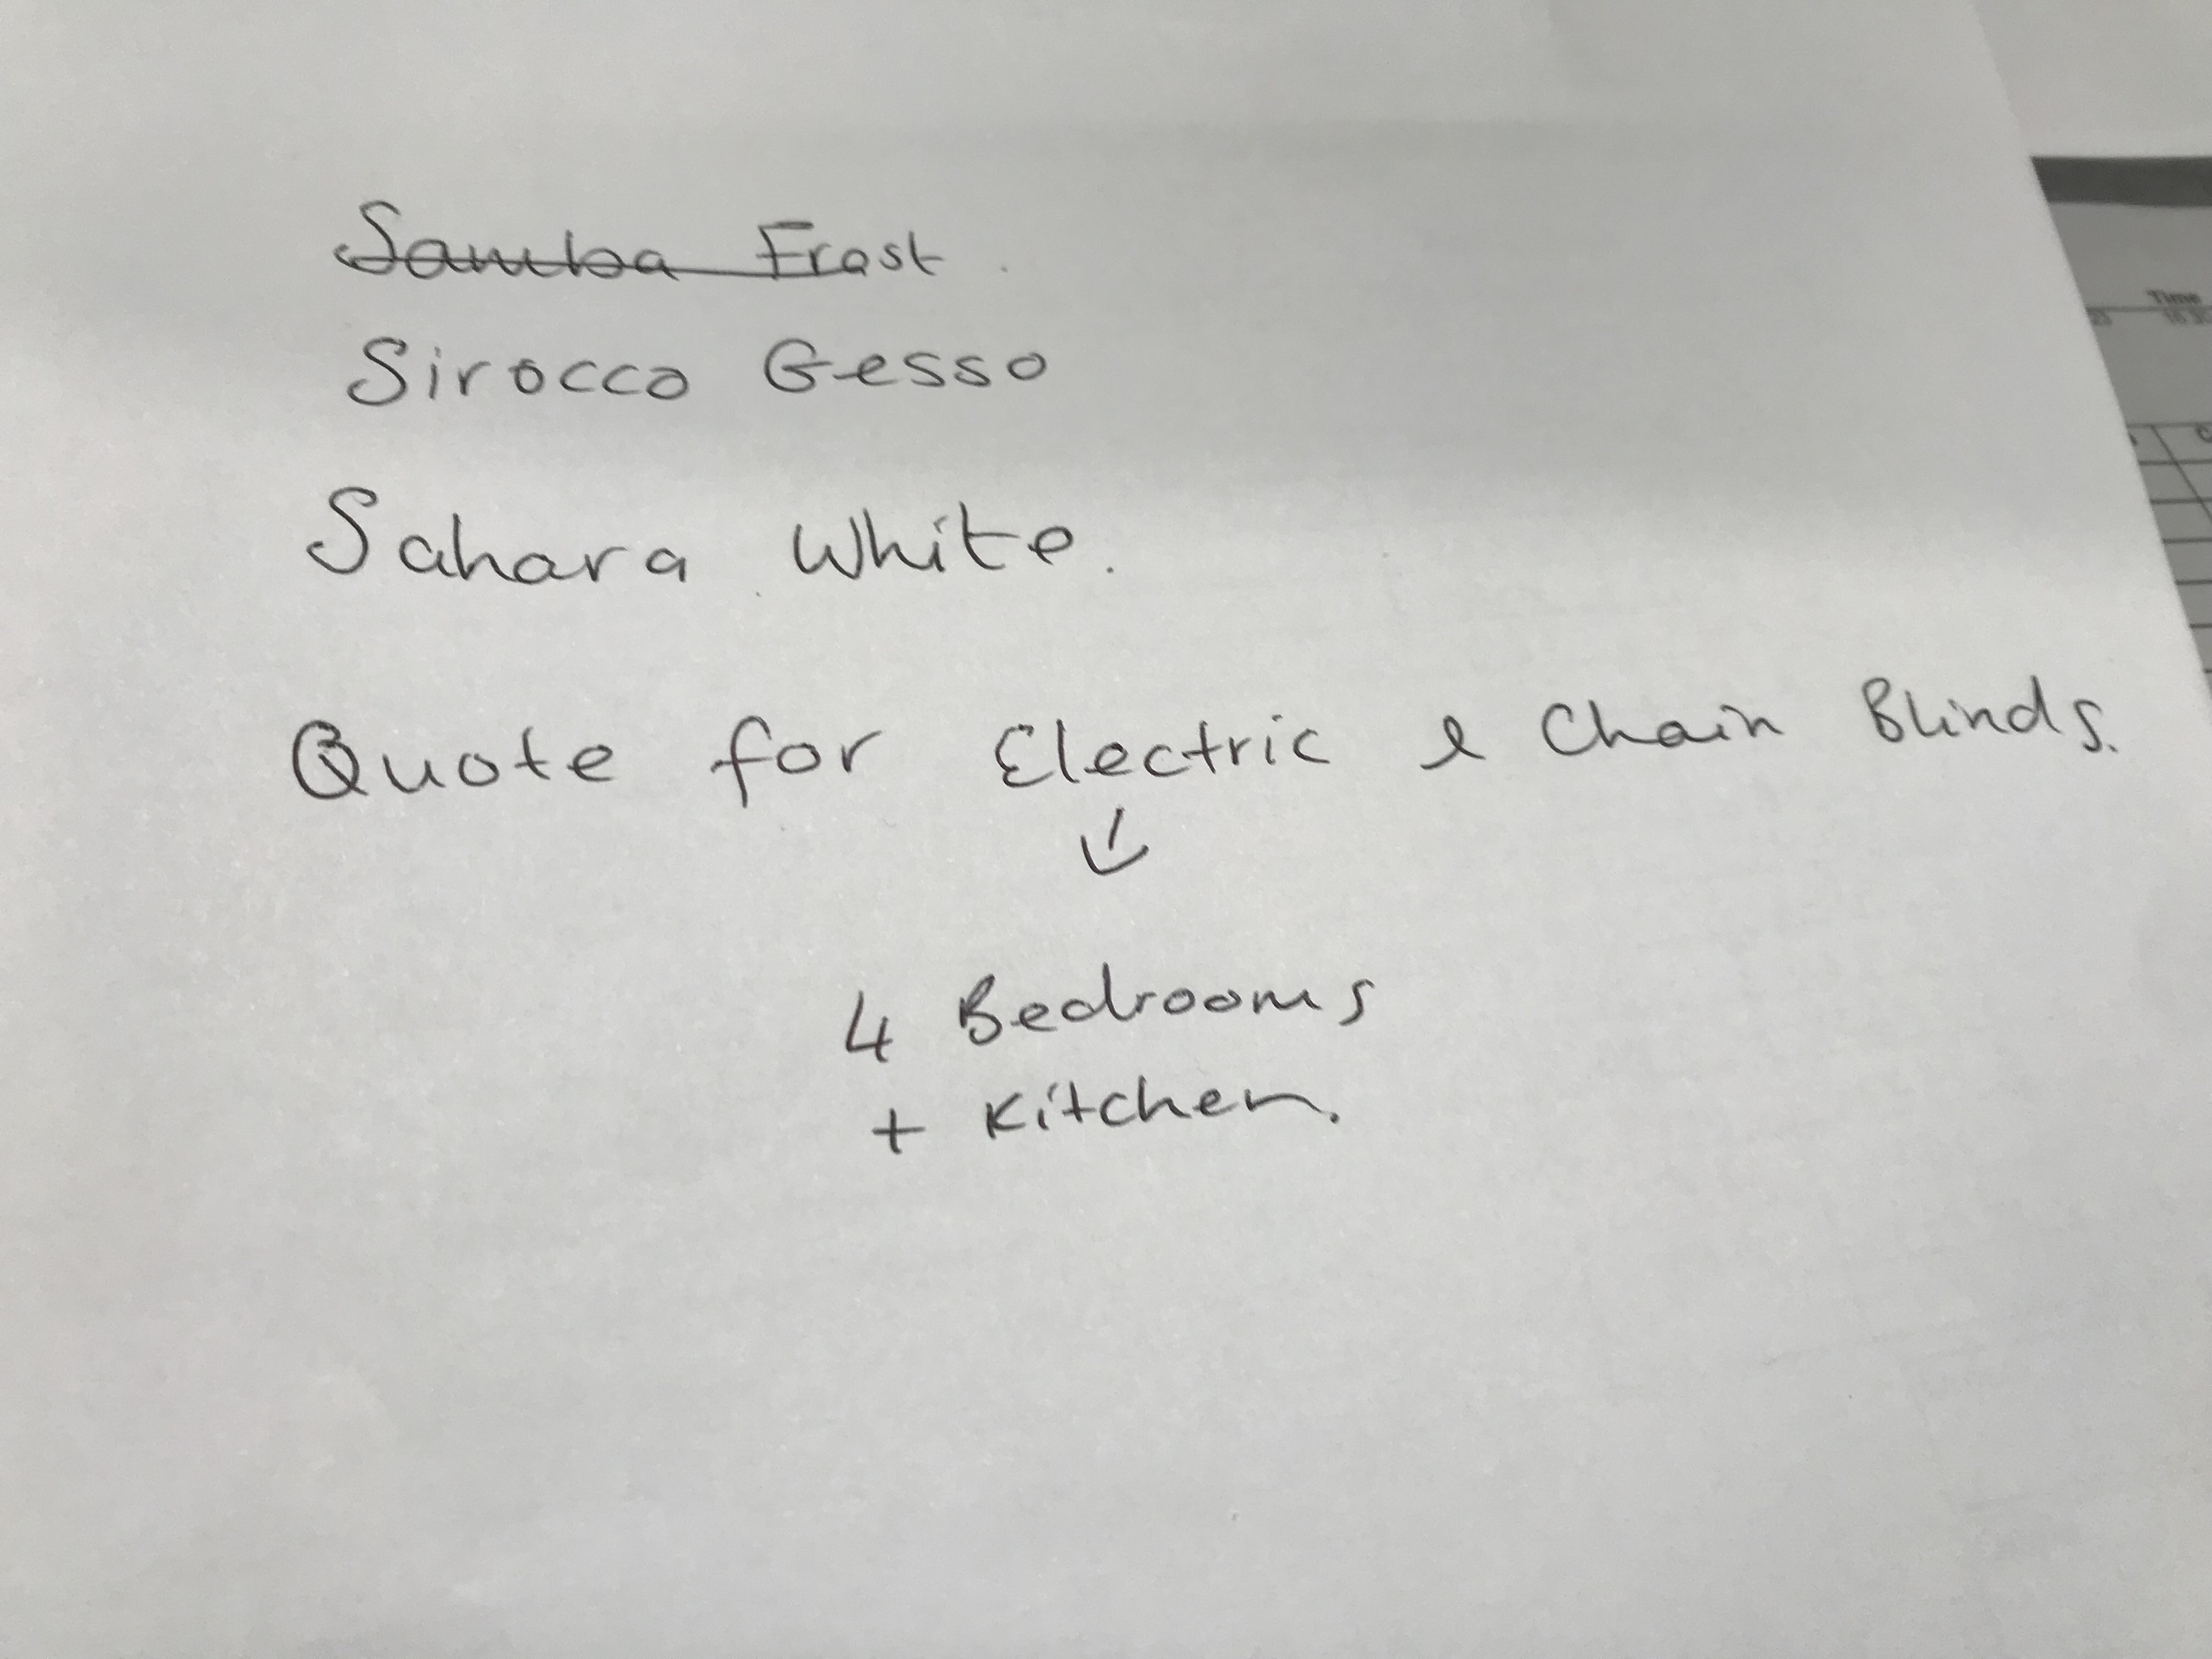 Samba Frost
Sirocco Gesso
Sahara White.
Quote for Electric & Chain Blinds.
↓
4 Bedrooms
+ Kitchen.
Time